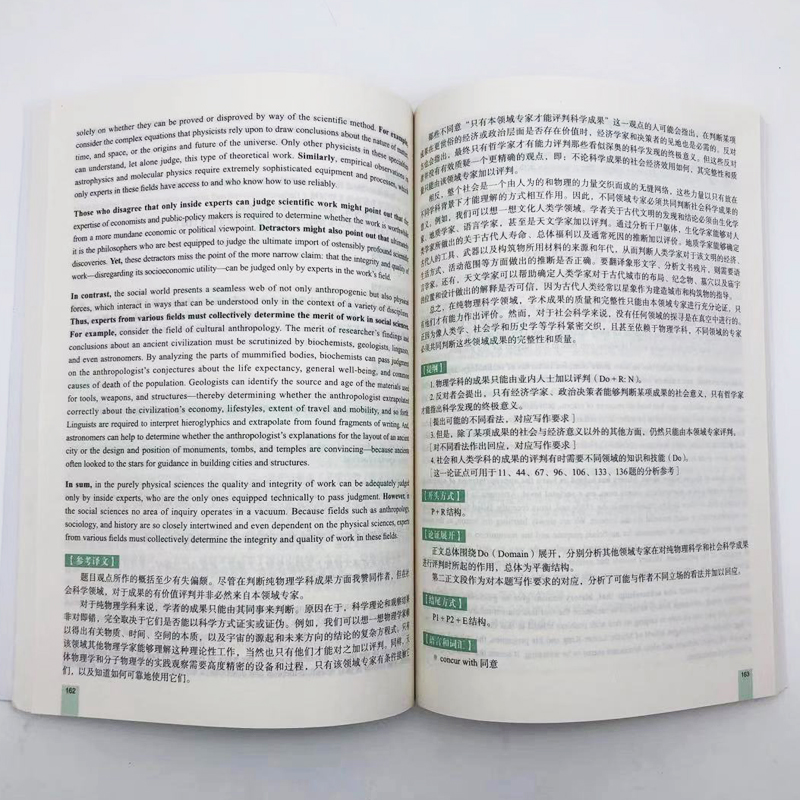 solely on whether they can be proved or disproved by way of the scientific method. For example,
consider the complex equations that physicists rely upon to draw conclusions about the nature of matter,
time, and space, or the origins and future of the universe. Only other physicists in these specialties
can understand, let alone judge, this type of theoretical work. Similarly, empirical observations in
astrophysics and molecular physics require extremely sophisticated equipment and processes, which
only experts in these fields have access to and who know how to use reliably.
Those who disagree that only inside experts can judge scientific work might point out that the
expertise of economists and public-policy makers is required to determine whether the work is worthwhile
from a more mundane economic or political viewpoint. Detractors might also point out that ultimately
it is the philosophers who are best equipped to judge the ultimate import of ostensibly profound scientific
discoveries. Yet, these detractors miss the point of the more narrow claim: that the integrity and quality of
work—disregarding its socioeconomic utility—can be judged only by experts in the work's field.
In contrast, the social world presents a seamless web of not only anthropogenic but also physical
forces, which interact in ways that can be understood only in the context of a variety of disciplines.
Thus, experts from various fields must collectively determine the merit of work in social sciences.
For example, consider the field of cultural anthropology. The merit of researcher's findings and
conclusions about an ancient civilization must be scrutinized by biochemists, geologists, linguists,
and even astronomers. By analyzing the parts of mummified bodies, biochemists can pass judgment
on the anthropologist's conjectures about the life expectancy, general well-being, and common
causes of death of the population. Geologists can identify the source and age of the materials used
for tools, weapons, and structures—thereby determining whether the anthropologist extrapolated
correctly about the civilization's economy, lifestyles, extent of travel and mobility, and so forth.
Linguists are required to interpret hieroglyphics and extrapolate from found fragments of writing. And,
astronomers can help to determine whether the anthropologist's explanations for the layout of an ancient
city or the design and position of monuments, tombs, and temples are convincing—because ancients
often looked to the stars for guidance in building cities and structures.
In sum, in the purely physical sciences the quality and integrity of work can be adequately judged
only by inside experts, who are the only ones equipped technically to pass judgment. However, in
the social sciences no area of inquiry operates in a vacuum. Because fields such as anthropology,
sociology, and history are so closely intertwined and even dependent on the physical sciences, experts
from various fields must collectively determine the integrity and quality of work in these fields.
【参考译文】
题目观点所作的概括至少有失偏颇。尽管在判断纯物理学科成果方面我赞同作者，但在社
会科学领域，对于成果的有价值评判并非必然来自本领域专家。
对于纯物理学科来说，学者的成果只能由其同事来判断。原因在于，科学理论和观察结果
非对即错，完全取决于它们是否能以科学方式证实或证伪。例如，我们可以想一想物理学家赖
以得出有关物质、时间、空间的本质，以及宇宙的源起和未来方向的结论的复杂方程式。只有
该领域其他物理学家能够理解这种理论性工作，当然也只有他们才能对之加以评判。同样，天
体物理学和分子物理学的实践观察需要高度精密的设备和过程，只有该领域专家有条件接触它
们，以及知道如何可靠地使用它们。
162
那些不同意“只有本领域专家才能评判科学成果”这一观点的人可能会指出，在判断某项
成果在更世俗的经济或政治层面是否存在价值时，经济学家和决策者的见地也是必需的。反对
者也会指出，最终只有哲学家才有能力评判那些看似深奥的科学发现的终极意义。但这些反对
者没有有效质疑一个更精确的观点，即：不论科学成果的社会经济效用如何，其完整性和质
量只能由该领域专家加以评判。
相反，整个社会是一个由人为的和物理的力量交织而成的无缝网络，这些力量以只有放在
不同学科背景下才能理解的方式相互作用。因此，不同领域专家必须共同判断社会科学成果的
意义。例如，我们可以想一想文化人类学领域。学者关于古代文明的发现和结论必须由生化学
家、地质学家、语言学家，甚至是天文学家加以评判。通过分析干尸躯体，生化学家能够对人
类学家所做出的关于古代人寿命、总体福利以及通常死因的推断加以评价。地质学家能够确定
古代人的工具、武器以及构筑物所用材料的来源和年代，从而判断人类学家对于该文明的经济、
生活方式、活动范围等方面做出的推断是否正确。要翻译象形文字、分析文书残片，则需要语
言学家，还有，天文学家可以帮助确定人类学家对于古代城市的布局、纪念物、墓穴以及庙宇
的位置和设计做出的解释是否可信，因为古代人类经常以星象作为建造城市和构筑物的指导。
总之，在纯物理科学领域，学术成果的质量和完整性只能由本领域专家进行充分论证，只
有他们才有能力作出评价。然而，对于社会科学来说，没有任何领域的探寻是在真空中进行的。
因为像人类学、社会学和历史学等学科紧密交织，且甚至依赖于物理学科，不同领域的专家
必须共同判断这些领域成果的完整性和质量。
【提纲】
1. 物理学科的成果只能由业内人士加以评判（Do + R: N）。
2. 反对者会提出，只有经济学家、政治决策者能够判断某项成果的社会意义，只有哲学家
才能指出科学发现的终极意义。
［提出可能的不同看法，对应写作要求］
3. 但是，除了某项成果的社会与经济意义以外的其他方面，仍然只能由本领域专家评判。
［对不同看法作出回应，对应写作要求］
4. 社会和人类学科的成果的评判有时需要不同领域的知识和技能（Do）。
［这一论证点可用于 11、44、67、96、106、133、136题的分析参考］
【开头方式】
P + R结构。
【论证展开】
正文总体围绕Do（Domain）展开，分别分析其他领域专家在对纯物理科学和社会科学成果
进行评判时所起的作用，总体为平衡结构。
第二正文段作为对本题写作要求的对应，分析了可能与作者不同立场的看法并加以回应。
【结尾方式】
P1 + P2 + E结构。
【语言和词汇】
concur with 同意
163